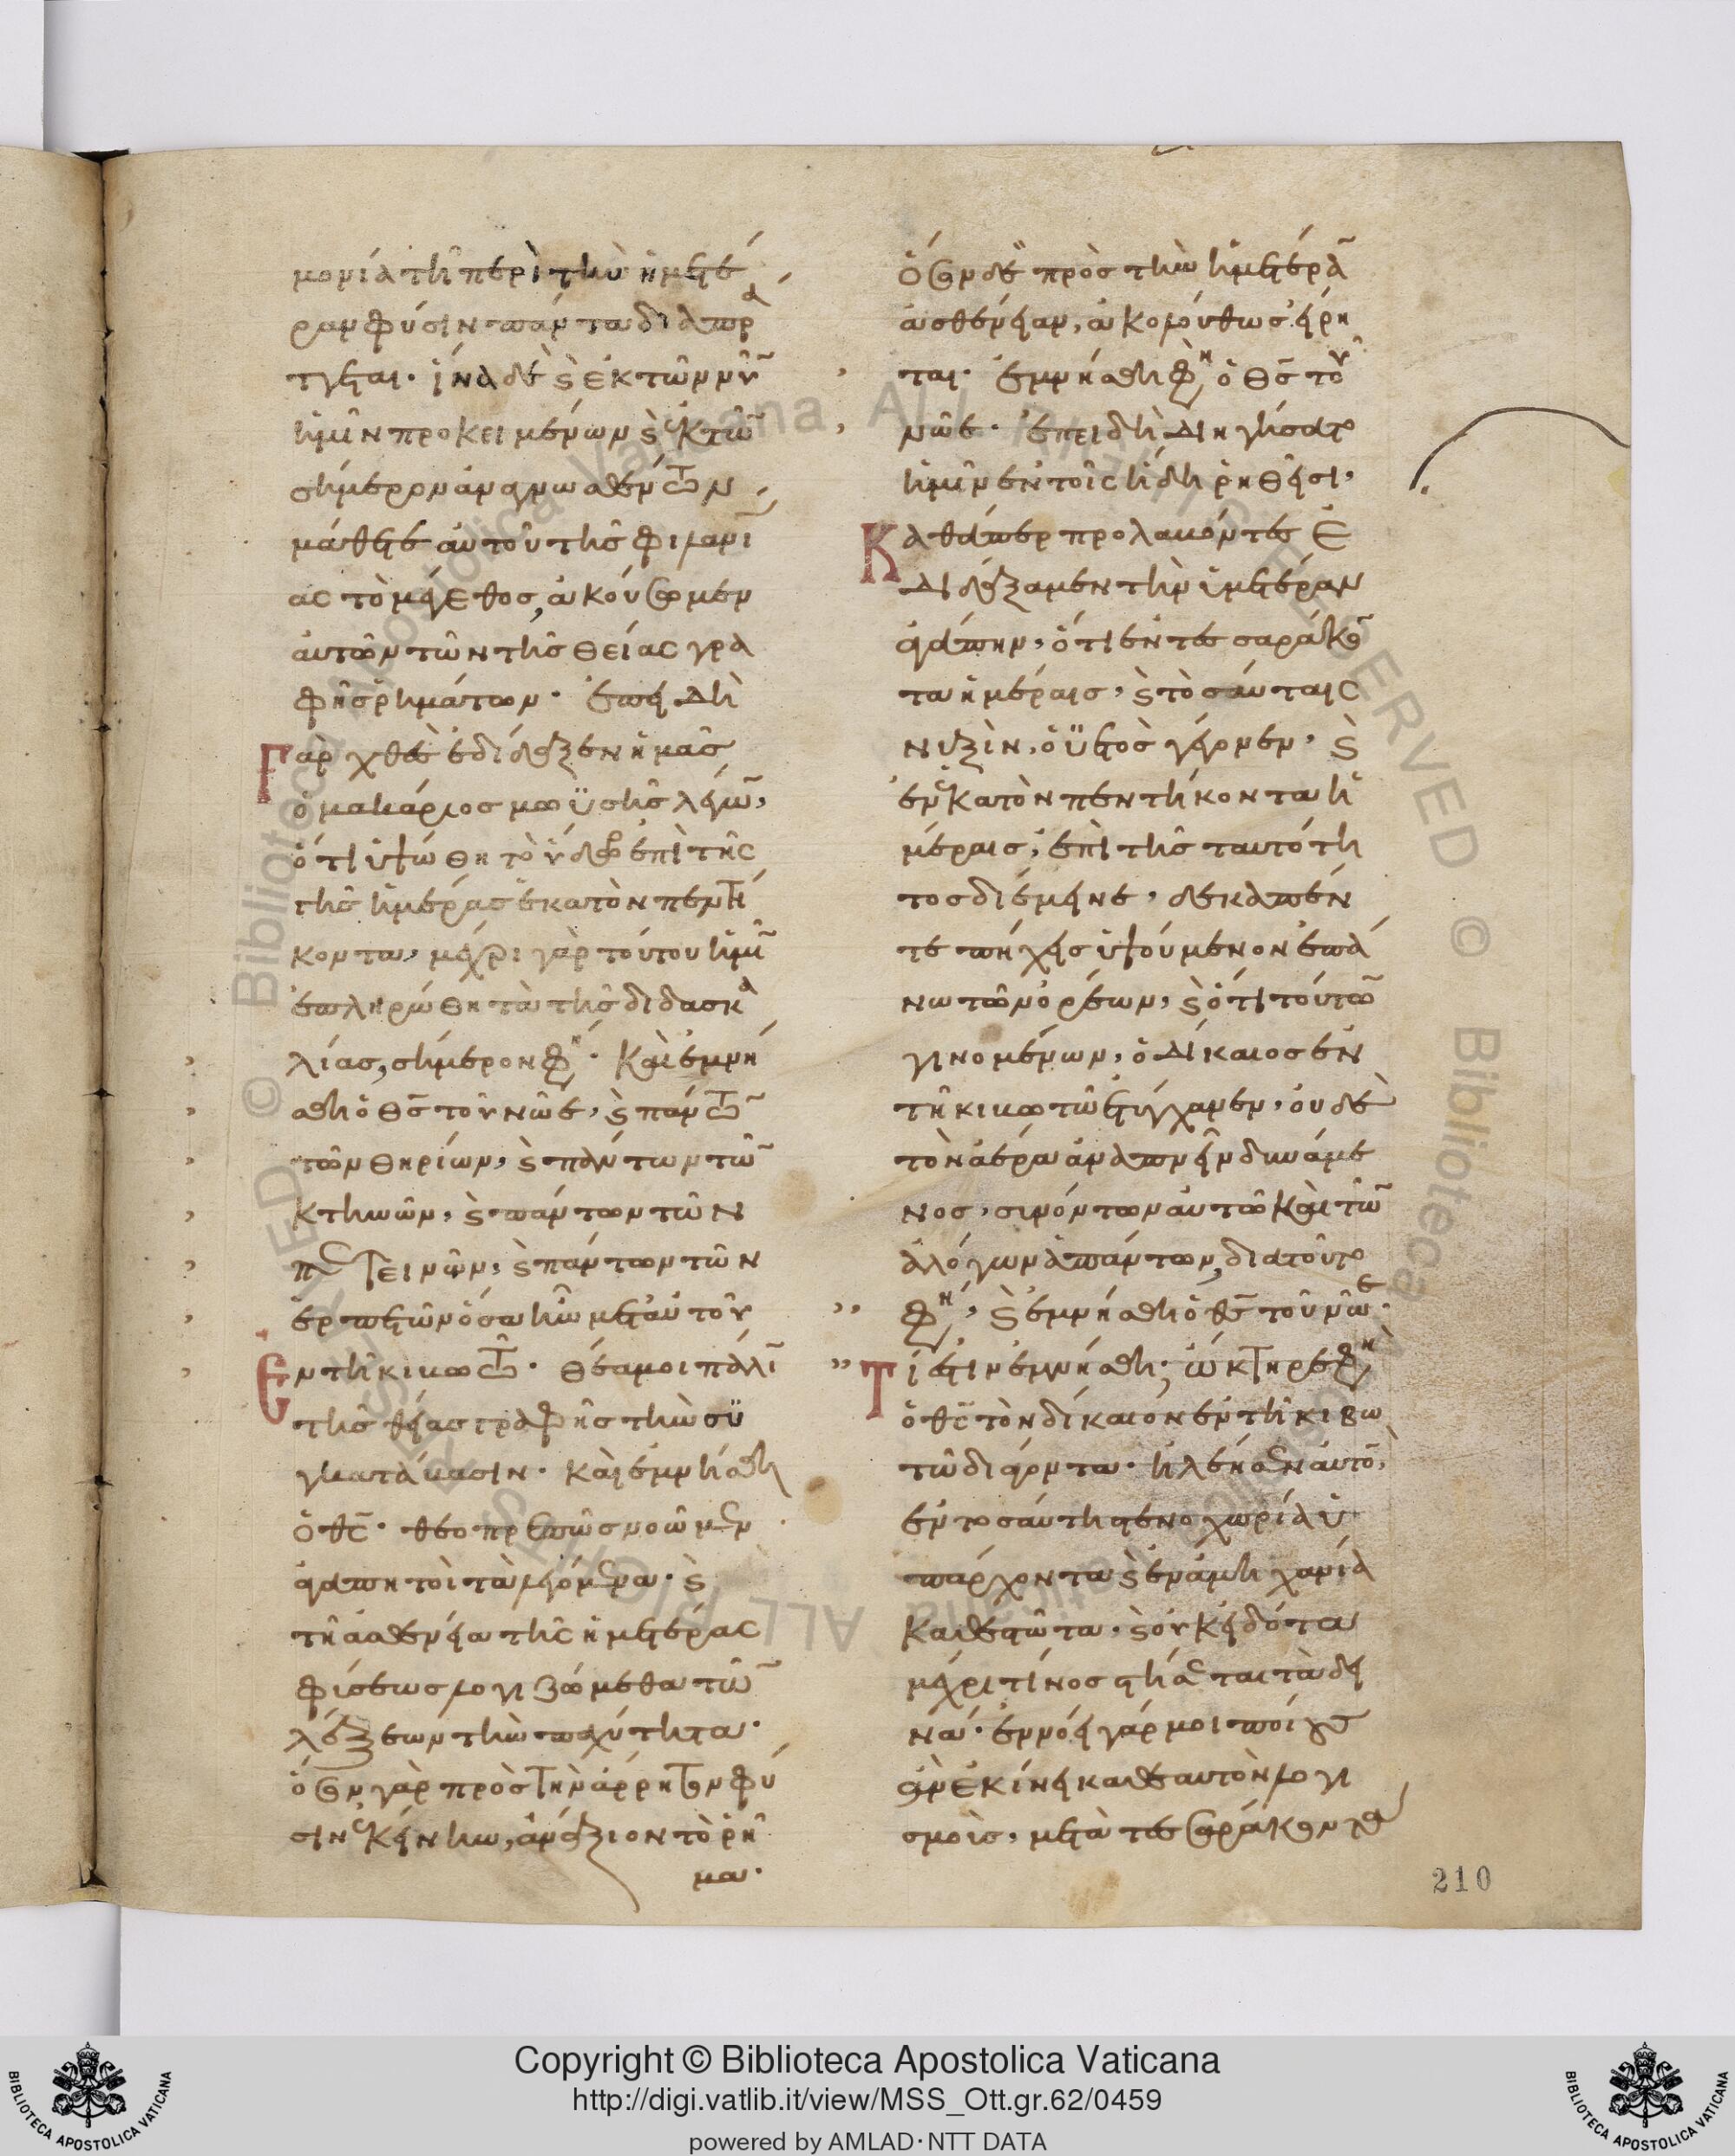 μονία τῆ περὶ τὴν ἡμετέ
ραν φύσιν πάντα διαπρά
τεται· ἵνα δὲ καὶ ἐκ τῶν νῦν
ἡμῖν προκειμένων καὶ ἐκ τῶν
σήμερον ἀναγνωσθέντων
μάθητε αὐτοῦ τῆς φιλανί
ας τὸ μέγεθος, ἀκούσωμεν
αὐτῶν τῶν τῆς θείας γρα
φῆς ρημάτων· ἐπειδὴ
Γὰρ χθὲς ἐδίδαξεν ἡμᾶς
ὁ μακάριος μωϋσῆς λέγων,
ὅτι ὑψώθη τὸ ὕδωρ ἐπὶ τῆς
γῆς ἡμέρας ἑκατὸν πεντή
κοντα, μέχρι γὰρ τούτου ἡμῖν
ἐπληρώθη τὰ τῆς διδασκα
λίας, σήμερον φη· Καὶ ἐμνή
σθη ὁ θς τοῦ νῶε, καὶ πάντων
τῶν θηρίων, καὶ πάντων τῶν
κτηνῶν, καὶ πάντων τῶν
πετεινῶν, καὶ πάντων τῶν
ἑρπετῶν ὅσα ἦν μετ αὐτοῦ
Εν τῆ κιβωτῶ· θέα μοι πάλιν
τῆς θείας γραφῆς τὴν συ
γκατάβασιν· καὶ ἐμνήσθη
ὁ θς· θεοπρεπῶς νοῶμεν
ἀγαπητοὶ τὰ λεγόμενα· καὶ
τῆ ἀσθενεία τῆς ἡμετέρας
φύσεως λογιζώμεθα τῶν
λέξεων τὴν παχύτητα·
ὅσον γὰρ πρὸς τὴν ἄρρητον φύ
σιν ἐκείνην, ἀνάξιον τὸ ρῆ
μα·
ὅσον δὲ πρὸς τὴν ἡμετέραν
ἀσθένειαν, ἀκολούθως εἴρη
ται· ἐμνήσθη φη ὁ θς τοῦ
νῶε· ἐπειδὴ διηγήσατο
ἡμῖν ἐν τοῖς ἤδη ρηθεῖσι,
Καθάπερ προλαβόντες ἐ
διδάξαμεν τὴν ὑμετέραν
ἀγάπην, ὅτι ἐν τεσσαράκο
ντα ἡμέραις, καὶ τοσαύταις
νυξὶν, ὁ ὑετὸς γέγονεν, καὶ
ἐν ἑκατὸν πεντήκοντα ἡ
μέραις, ἐπὶ τῆς ταυτότη
τος διέμεινε, δεκαπέν
τε πήχεις ὑψούμενον ἐπά
νω τῶν ὀρέων, καὶ ὅτι τούτων
γινομένων, ὁ δίκαιος ἐν
τῆ κιβωτῶ ἐτύγχανεν, οὐδὲ
τὸν ἀέρα ἀναπνεῖν δυνάμε
νος, συνόντων αὐτῶ καὶ τῶν
ἀλόγων ἁπάντων, διατοῦτο
φη, καὶ ἐμνήσθη ὁ θς τοῦ νῶε·
Τί ἐστιν ἐμνήσθη; ὤκτηρε φη
ὁ θς τὸν δίκαιον ἐν τῆ κιβω
τῶ διάγοντα· ἠλέησεν αὐτὸν,
ἐν τοσαύτη στενοχωρία ὑ
πάρχοντα καὶ ἐν ἀμηχανία
καθεστῶτα, καὶ οὐκ εἰδότα
μέχρι τίνος στήσεται τὰ δει
νά· ἐννόει γάρ μοι ποίους
εἶχεν ἐκεῖνος καθ αυτὸν λογι
σμοὺς, μετὰ τεσσαράκοντα
210
Copyright © Biblioteca Apostolica Vaticana
http://digi.vatlib.it/view/MSS_Ott.gr.62/0459
powered by AMLAD·NTT DATA